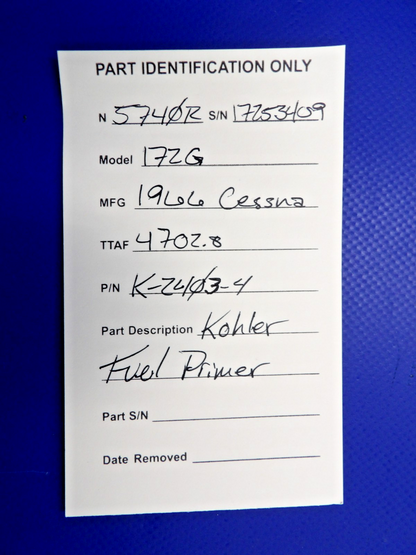 PART IDENTIFICATION ONLY
N 5740R S/N 17253409
Model 172G
MFG 1966 Cessna
TTAF 4702.8
P/N K-2403-4
Part Description Kohler
Fuel Primer
Part S/N
Date Removed